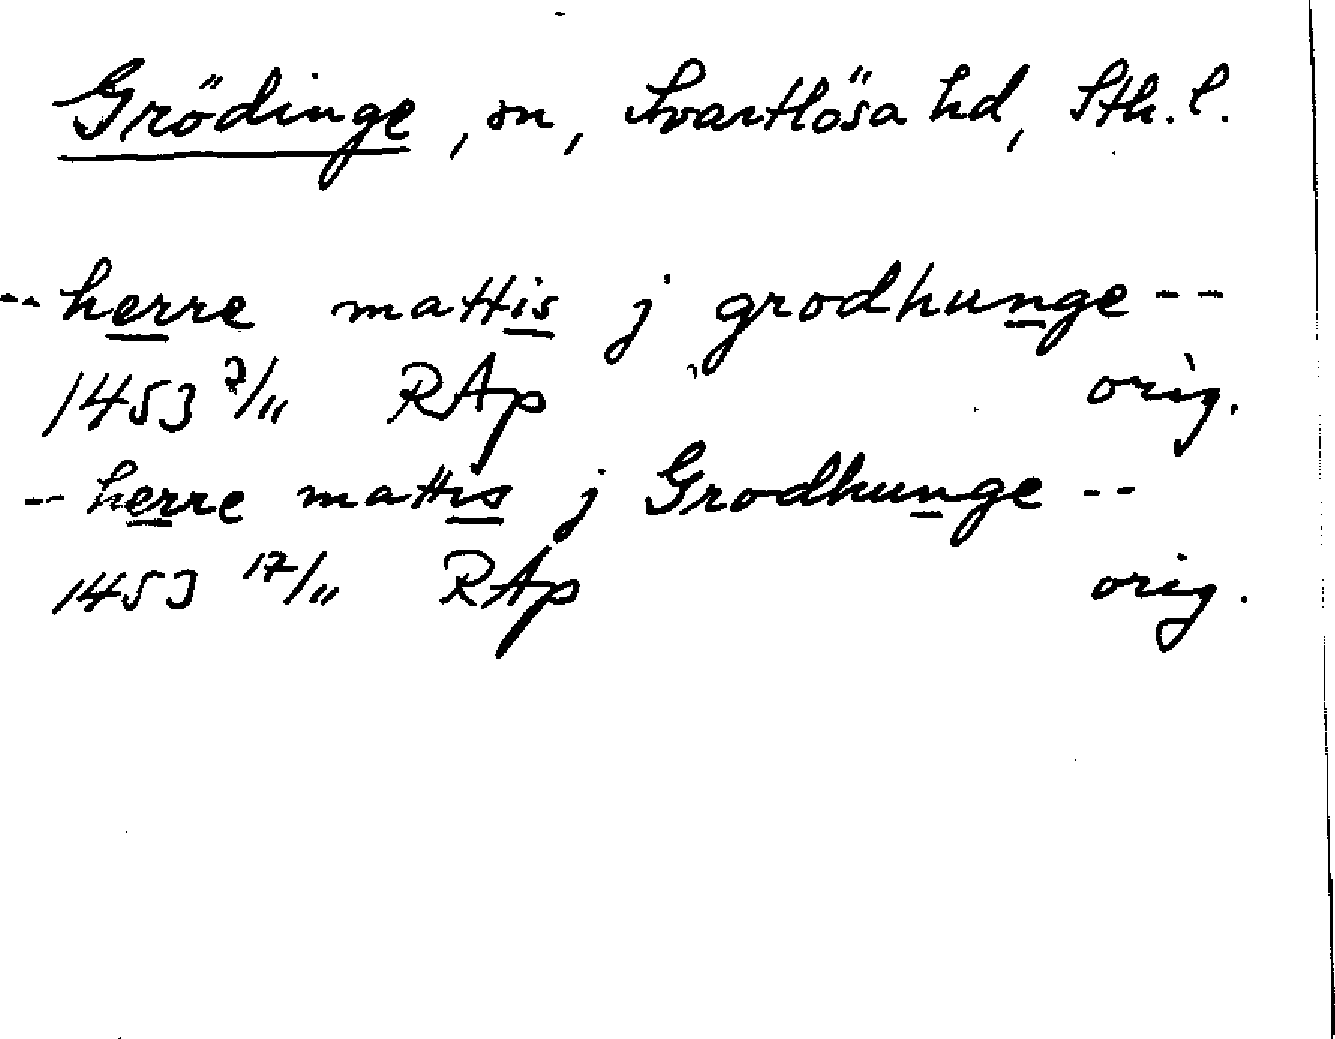 Grödinge, sn, Svartlösa hd, Sth. l.
-- herre mattis j grodhunge --
1453 7/11 RAp orig.
-- herre mattis j Grodhunge --
1453 17/11 RAp orig.